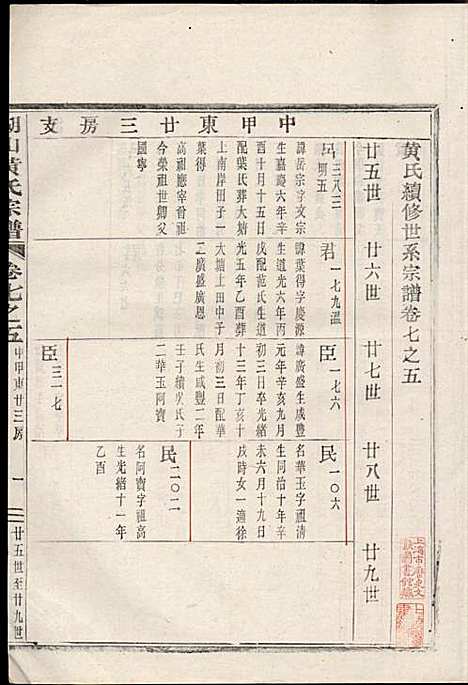 黃氏續修世系宗譜卷七之五
廿五世
廿六世
廿七世
廿八世
廿九世
中甲東廿三房支
諱岳宗字文宗
生嘉慶六年辛
酉十月十五日
配葉氏葬大塘
上南岸田子一
葉得
高祖應宰曾祖
榮祖世卿父
國寧
君一七九溫
諱葉得字慶源
生道光六年丙
戌配范氏生道
光五年乙酉葬
大塘上田中子
二廣盛廣恩
臣一七六
諱廣盛生咸豐
元年辛亥九月
初三日卒光緒
十三年丁亥十
月前三日配葉
氏生咸豐二年
壬子續吳氏子
二華玉阿寶
臣三一七
民一〇六
名華玉字祖清
生同治十年辛
未六月十九日
戌時女一適徐
民二〇二
名阿寶字祖高
生光緒十一年
乙酉
山黃氏宗譜
卷七之五
中甲東廿三房
一
廿五世至廿九世
上海市歷史文
獻圖書館藏